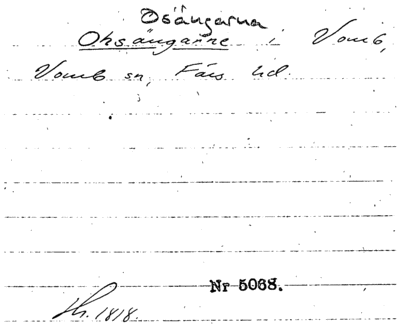 Osängarna
Ohsängarne i Vomb,
Vomb sn, Färs hd.
Nr 5068.
Lh. 1818.